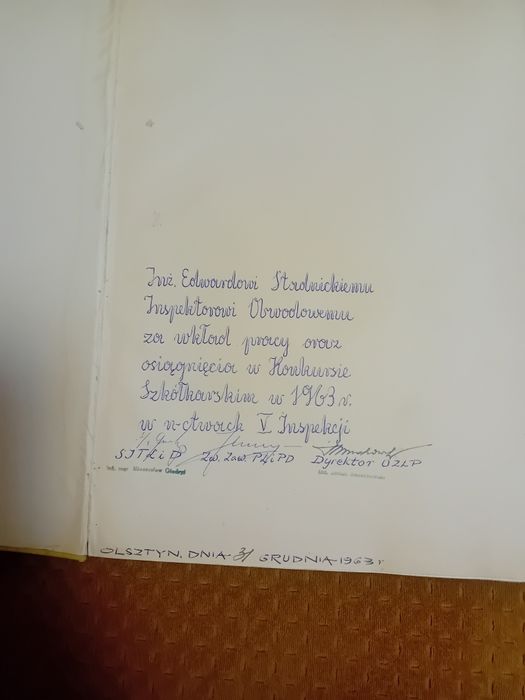 Inż. Edwardowi Stadnickiemu
Inspektorowi Obwodowemu
za wkład pracy oraz
osiągnięcia w Konkursie
Szkółkarskim w 1963 r.
w n-ctwach V Inspekcji
SITLiD Zw. Zaw. PLiPD Dyrektor OZLP
OLSZTYN, DNIA 31 GRUDNIA 1963 r